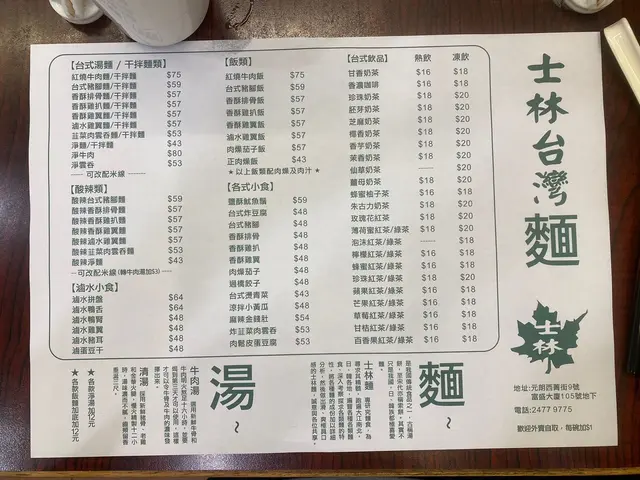 【台式湯麵 / 干拌麵類】
紅燒牛肉麵/干拌麵 $75
台式豬腳麵/干拌麵 $59
香酥排骨麵/干拌麵 $57
香酥雞扒麵/干拌麵 $57
香酥雞翼麵/干拌麵 $57
滷水雞翼麵/干拌麵 $57
韮菜肉雲吞麵/干拌麵 $53
淨麵/干拌麵 $43
淨牛肉 $80
淨雲吞 $53
--- 可改配米線 ---
【酸辣類】
酸辣台式豬腳麵 $59
酸辣香酥排骨麵 $57
酸辣香酥雞扒麵 $57
酸辣香酥雞翼麵 $57
酸辣滷水雞翼麵 $57
酸辣韮菜肉雲吞麵 $53
酸辣淨麵 $43
--可改配米線(轉牛肉湯加$3)---
【滷水小食】
滷水拼盤 $64
滷水鴨舌 $64
滷水鴨腎 $48
滷水雞翼 $48
滷水豬耳 $48
滷蛋豆干 $48
【飯類】
紅燒牛肉飯 $75
台式豬腳飯 $59
香酥排骨飯 $57
香酥雞扒飯 $57
香酥雞翼飯 $57
滷水雞翼飯 $57
肉燥茄子飯 $57
正肉燥飯 $43
★以上飯類配肉燥及肉汁★
【各式小食】
鹽酥魷魚鬚 $59
台式炸豆腐 $48
台式豬腳 $48
香酥排骨 $48
香酥雞扒 $48
香酥雞翼 $48
肉燥茄子 $48
過橋餃子 $48
台式燙青菜 $43
涼拌小黃瓜 $48
麻辣金錢肚 $54
炸韮菜肉雲吞 $53
肉鬆皮蛋豆腐 $53
【台式飲品】 熱飲 凍飲
甘香奶茶 $16 $18
香濃咖啡 $16 $18
珍珠奶茶 $18 $20
胚芽奶茶 $18 $20
芝麻奶茶 $18 $20
椰香奶茶 $18 $20
香芋奶茶 $18 $20
茉香奶茶 $18 $20
仙草奶茶 —— $20
薑母奶茶 $18 $20
蜂蜜柚子茶 $16 $18
朱古力奶茶 $18 $20
玫瑰花紅茶 $18 $20
薄荷蜜紅茶/綠茶 $18 $20
泡沫紅茶/綠茶 —— $18
檸檬紅茶/綠茶 $16 $18
蜂蜜紅茶/綠茶 $16 $18
珍珠紅茶/綠茶 $18 $20
蘋果紅茶/綠茶 $16 $18
芒果紅茶/綠茶 $16 $18
草莓紅茶/綠茶 $16 $18
甘桔紅茶/綠茶 $16 $18
百香果紅茶/綠茶 $16 $18
士林台灣麵
士林
地址:元朗西菁街9號
富盛大廈105號地下
電話:2477 9775
歡迎外賣自取，每碗加$1
麵~
士林麵
湯~
牛肉湯
清湯
★各款淨湯加12元
★各款飯麵加底加12元